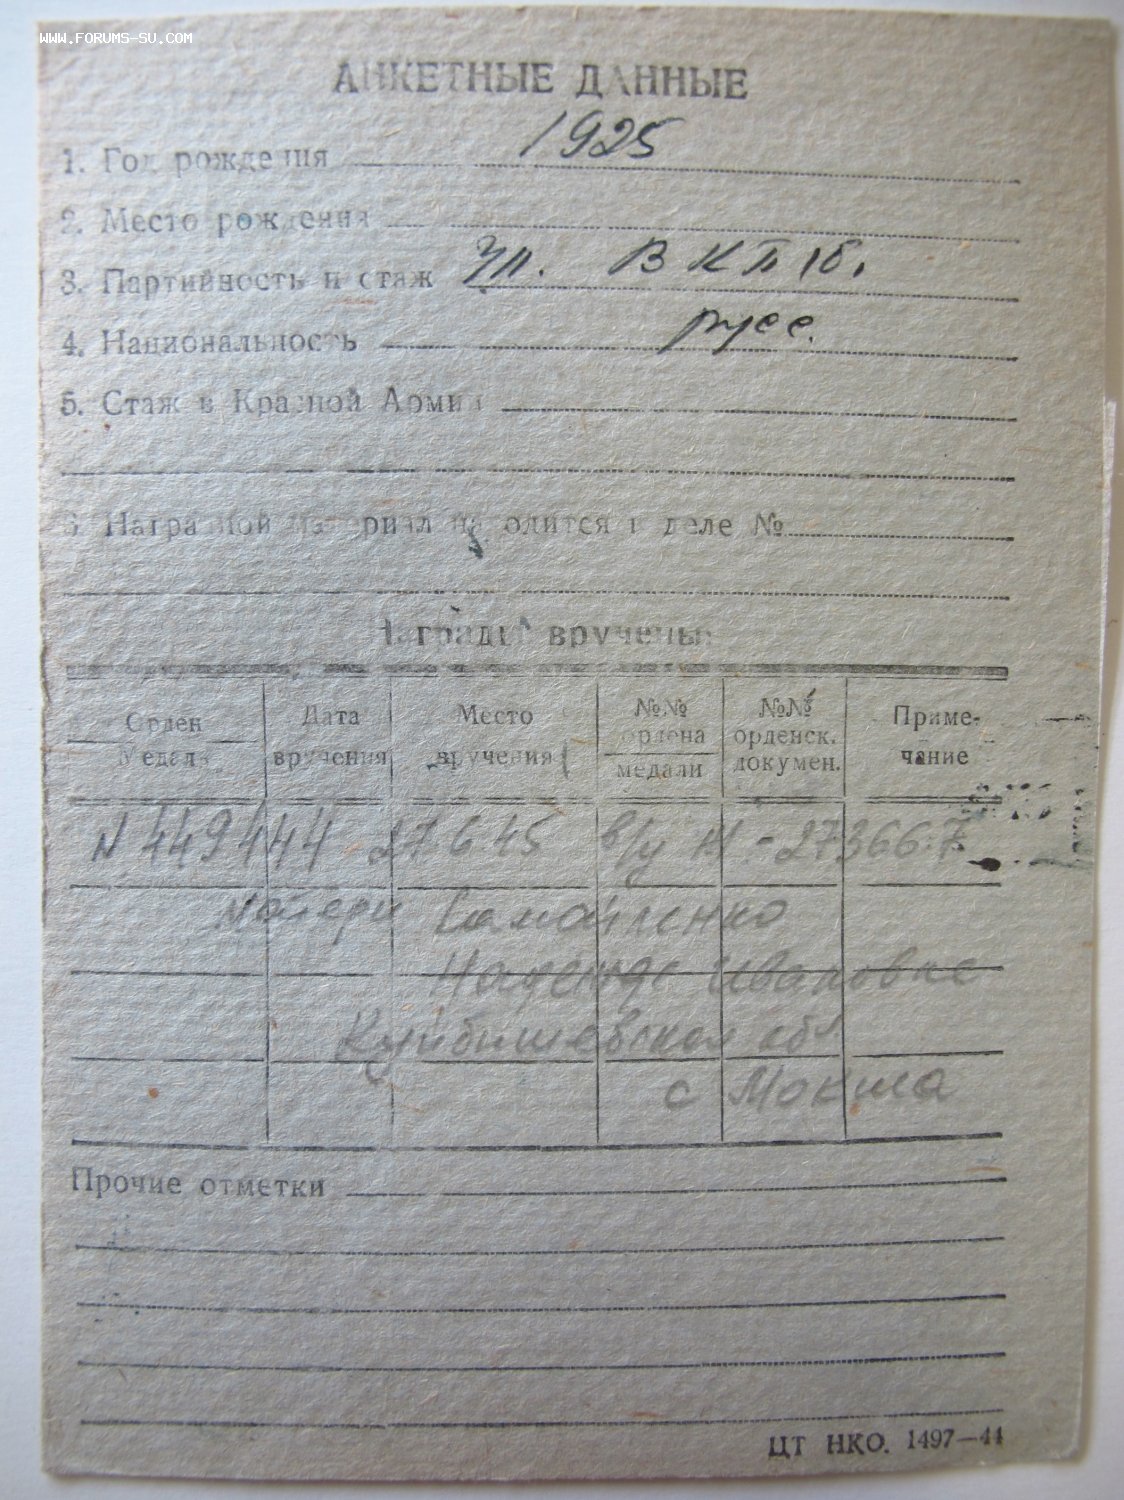 WWW.FORUMS-SU.COM
АНКЕТНЫЕ ДАННЫЕ
1. Год рождения 1925
2. Место рождения
3. Партийность и стаж Чл. ВКП/б.
4. Национальность русс.
5. Стаж в Красной Армии
6. Наградной материал находится в деле №
Награды вручены:
Орден Медаль
Дата вручения
Место вручения
№№ ордена медали
№№ орденск. докумен.
Приме-чание
N 449444 27 6 45 в/у № - 273667
Матери Самойленко
Надежде Ивановне
Куйбышевская обл
с Мокша
Прочие отметки
ЦТ НКО. 1497—44